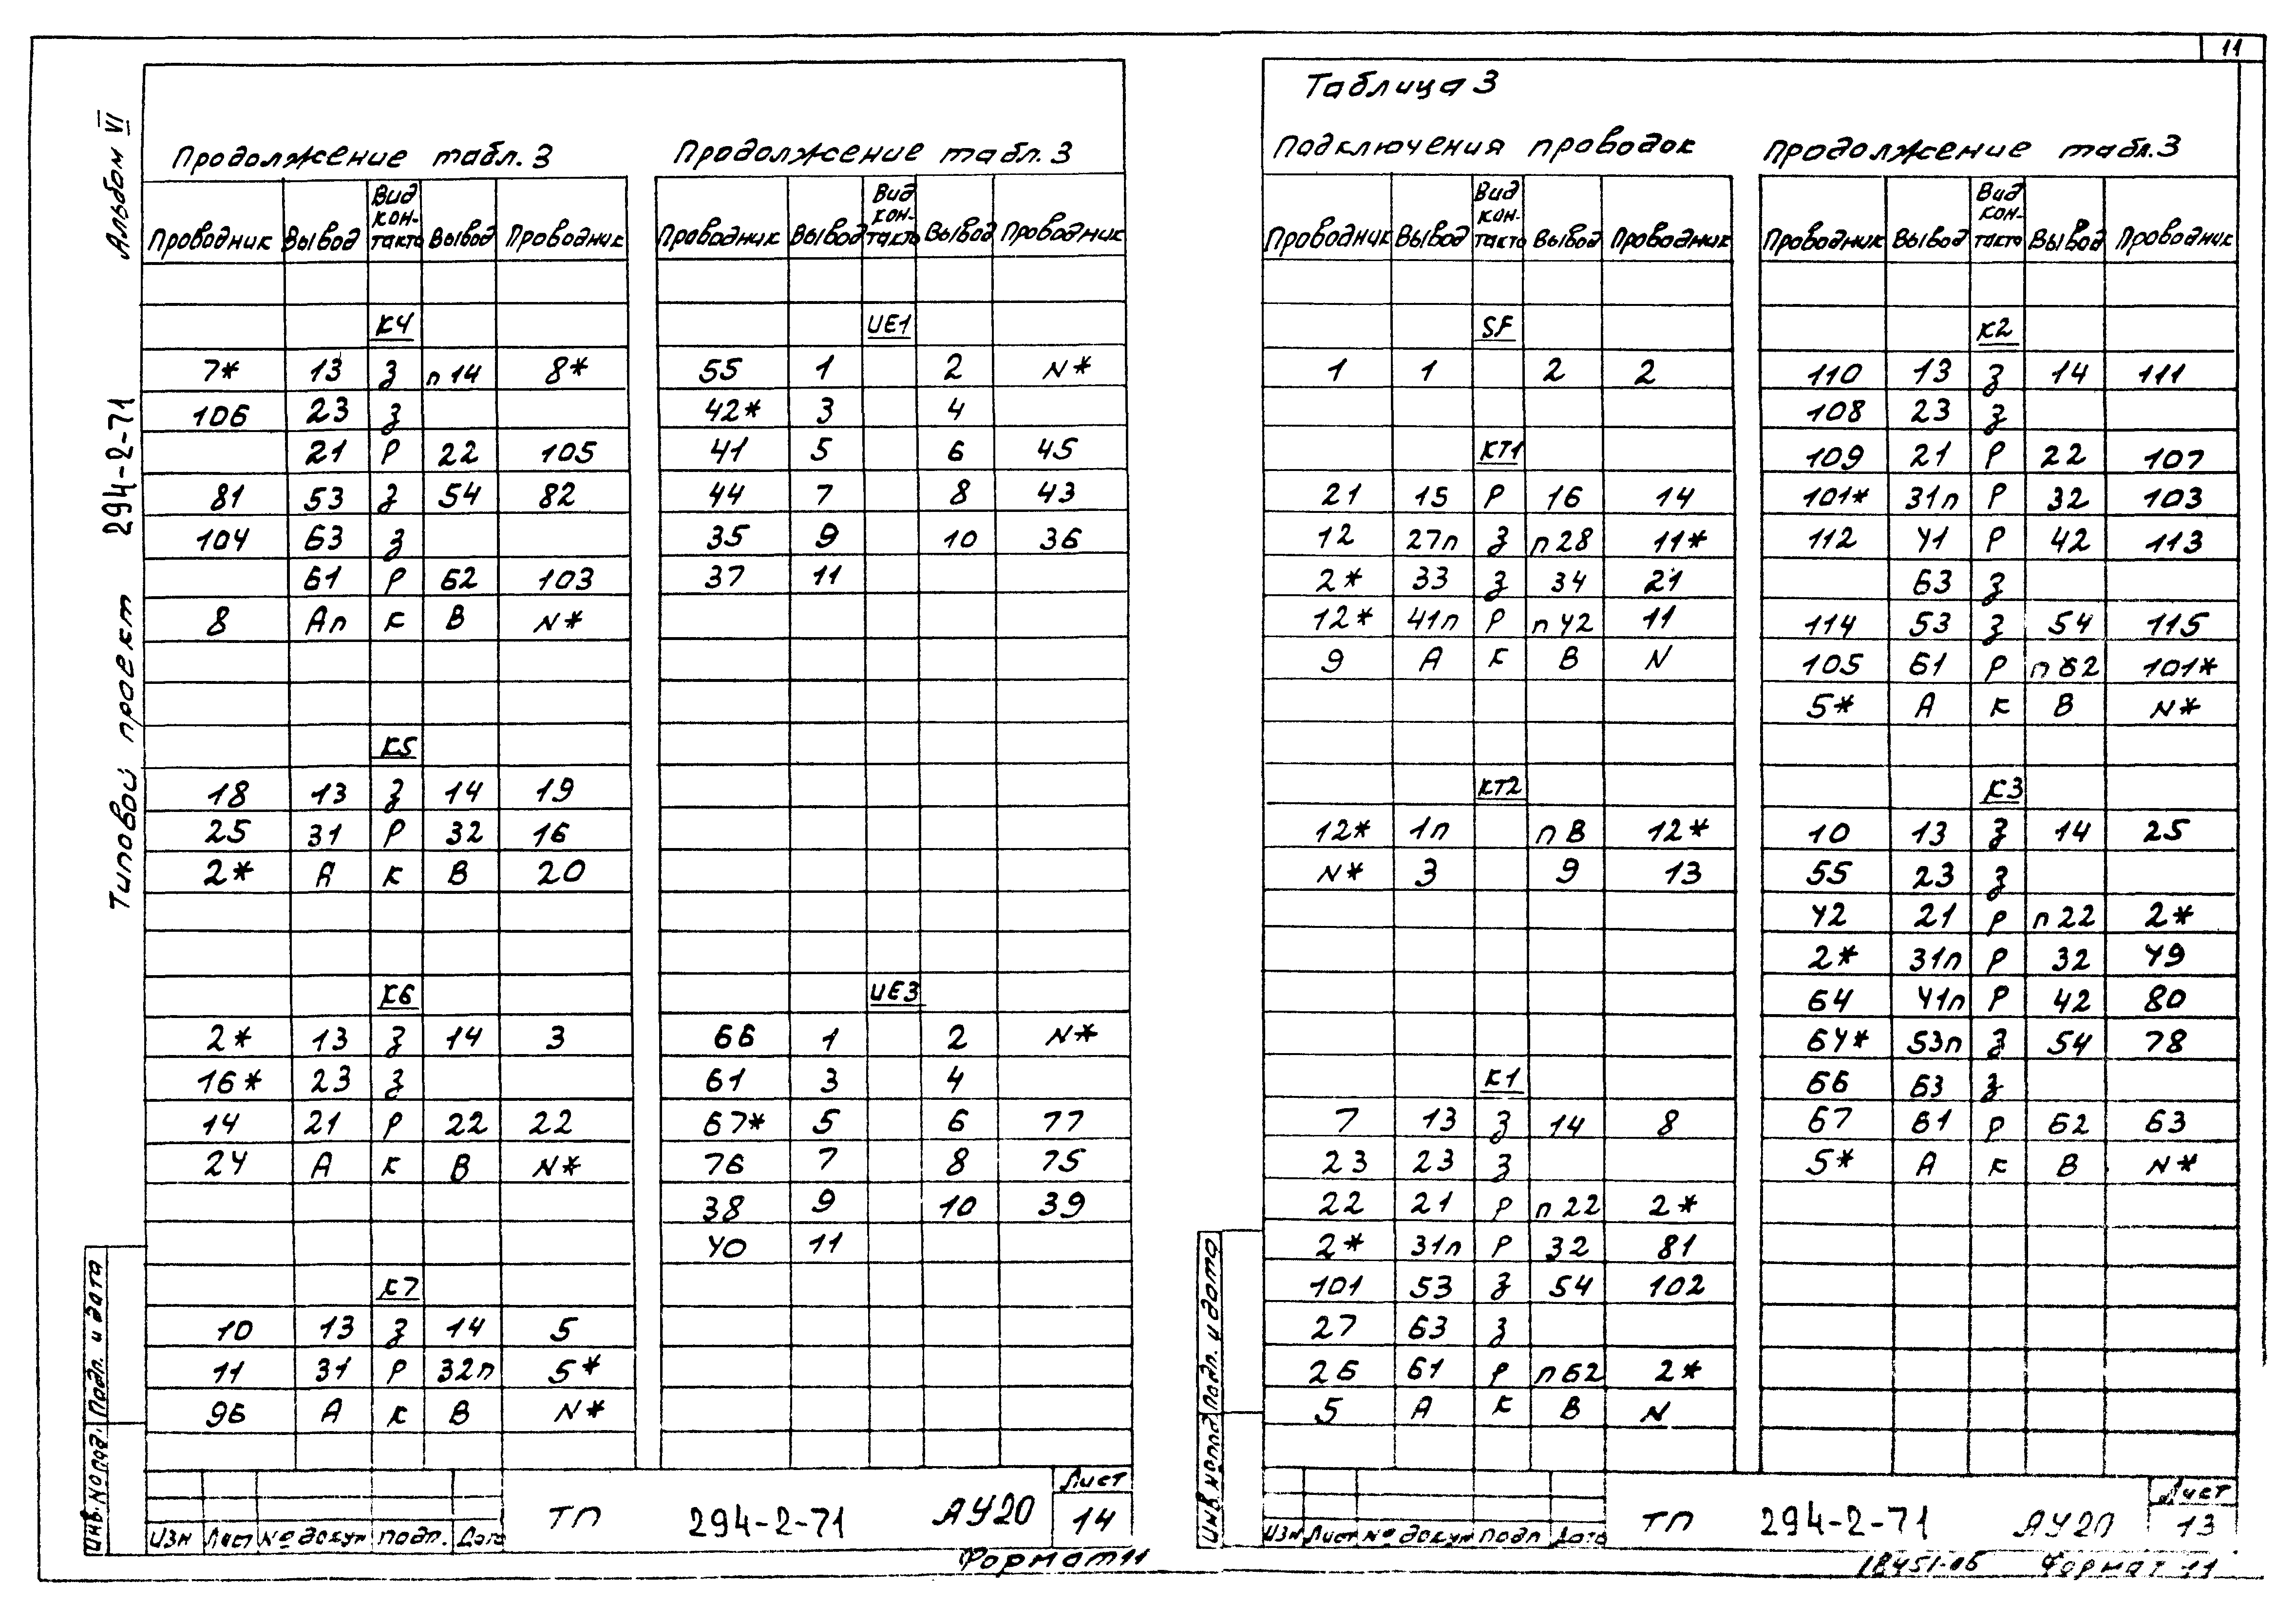 11
Альбом VI
Типовой проект 294-2-71
Продолжение табл. 3
Проводник Вывод Вид кон-такта Вывод Проводник
К4
7* 13 З п14 8*
106 23 З
21 Р 22 105
81 53 З 54 82
104 63 З
61 Р 62 103
8 Ап К В N*
К5
18 13 З 14 19
25 31 Р 32 16
2* А К В 20
К6
2* 13 З 14 3
16* 23 З
14 21 Р 22 22
24 А К В N*
К7
10 13 З 14 5
11 31 Р 32п 5*
96 А К В N*
Продолжение табл. 3
Проводник Вывод Вид кон-такта Вывод Проводник
UE1
55 1 2 N*
42* 3 4
41 5 6 45
44 7 8 43
35 9 10 36
37 11
UE3
66 1 2 N*
61 3 4
67* 5 6 77
76 7 8 75
38 9 10 39
40 11
Инв.№подл. Подп. и дата
Изм Лист № докум подп. Дата
ТП 294-2-71 АУ20
Лист
14
Формат 11
Таблица 3
Подключения проводок
Проводник Вывод Вид кон-такта Вывод Проводник
SF
1 1 2 2
КТ1
21 15 Р 16 14
12 27п З п28 11*
2* 33 З 34 21
12* 41п Р п42 11
9 А К В N
КТ2
12* 1п пВ 12*
N* 3 9 13
К1
7 13 З 14 8
23 23 З
22 21 Р п22 2*
2* 31п Р 32 81
101 53 З 54 102
27 63 З
26 61 Р п62 2*
5 А К В N
Продолжение табл. 3
Проводник Вывод Вид кон-такта Вывод Проводник
К2
110 13 З 14 111
108 23 З
109 21 Р 22 107
101* 31п Р 32 103
112 41 Р 42 113
63 З
114 53 З 54 115
105 61 Р п62 101*
5* А К В N*
К3
10 13 З 14 25
55 23 З
42 21 Р п22 2*
2* 31п Р 32 49
64 41п Р 42 80
64* 53п З 54 78
66 63 З
67 61 Р 62 63
5* А К В N*
Инв.№подл Подп. и дата
Изм Лист № докум подп Дата
ТП 294-2-71 АУ20
Лист
13
18451-06 Формат 11